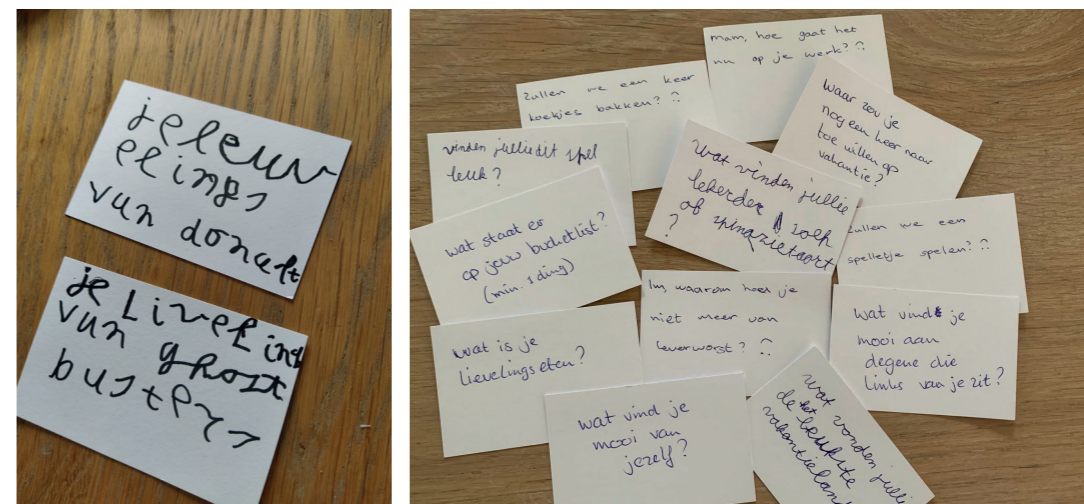 jeleuw
elings
van donalt
je Liveling
van ghost
busters
mam, hoe gaat het
nu op je werk?
Zullen we een keer
koekjes bakken?
Waar zou je
nog een keer naar
toe willen op
vakantie?
vinden jullie dit spel
leuk?
Wat vinden jullie
lekerder soep
of spinazietaart
?
wat staat er
op jouw bucketlist?
(min. 1 ding)
zullen we een
spelletje spelen?
waarom hoef je
niet meer van
leverworst?
Wat vind je
mooi aan
degene die
links van je zit?
wat is je
lievelingseten?
wat vind je
mooi van
jezelf?
wat vonden jullie
de leukste
vakantieland